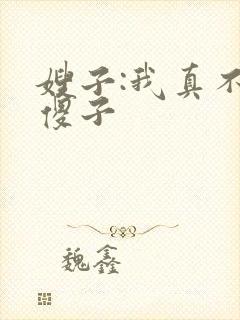 嫂子:我真不
傻子
魏鑫